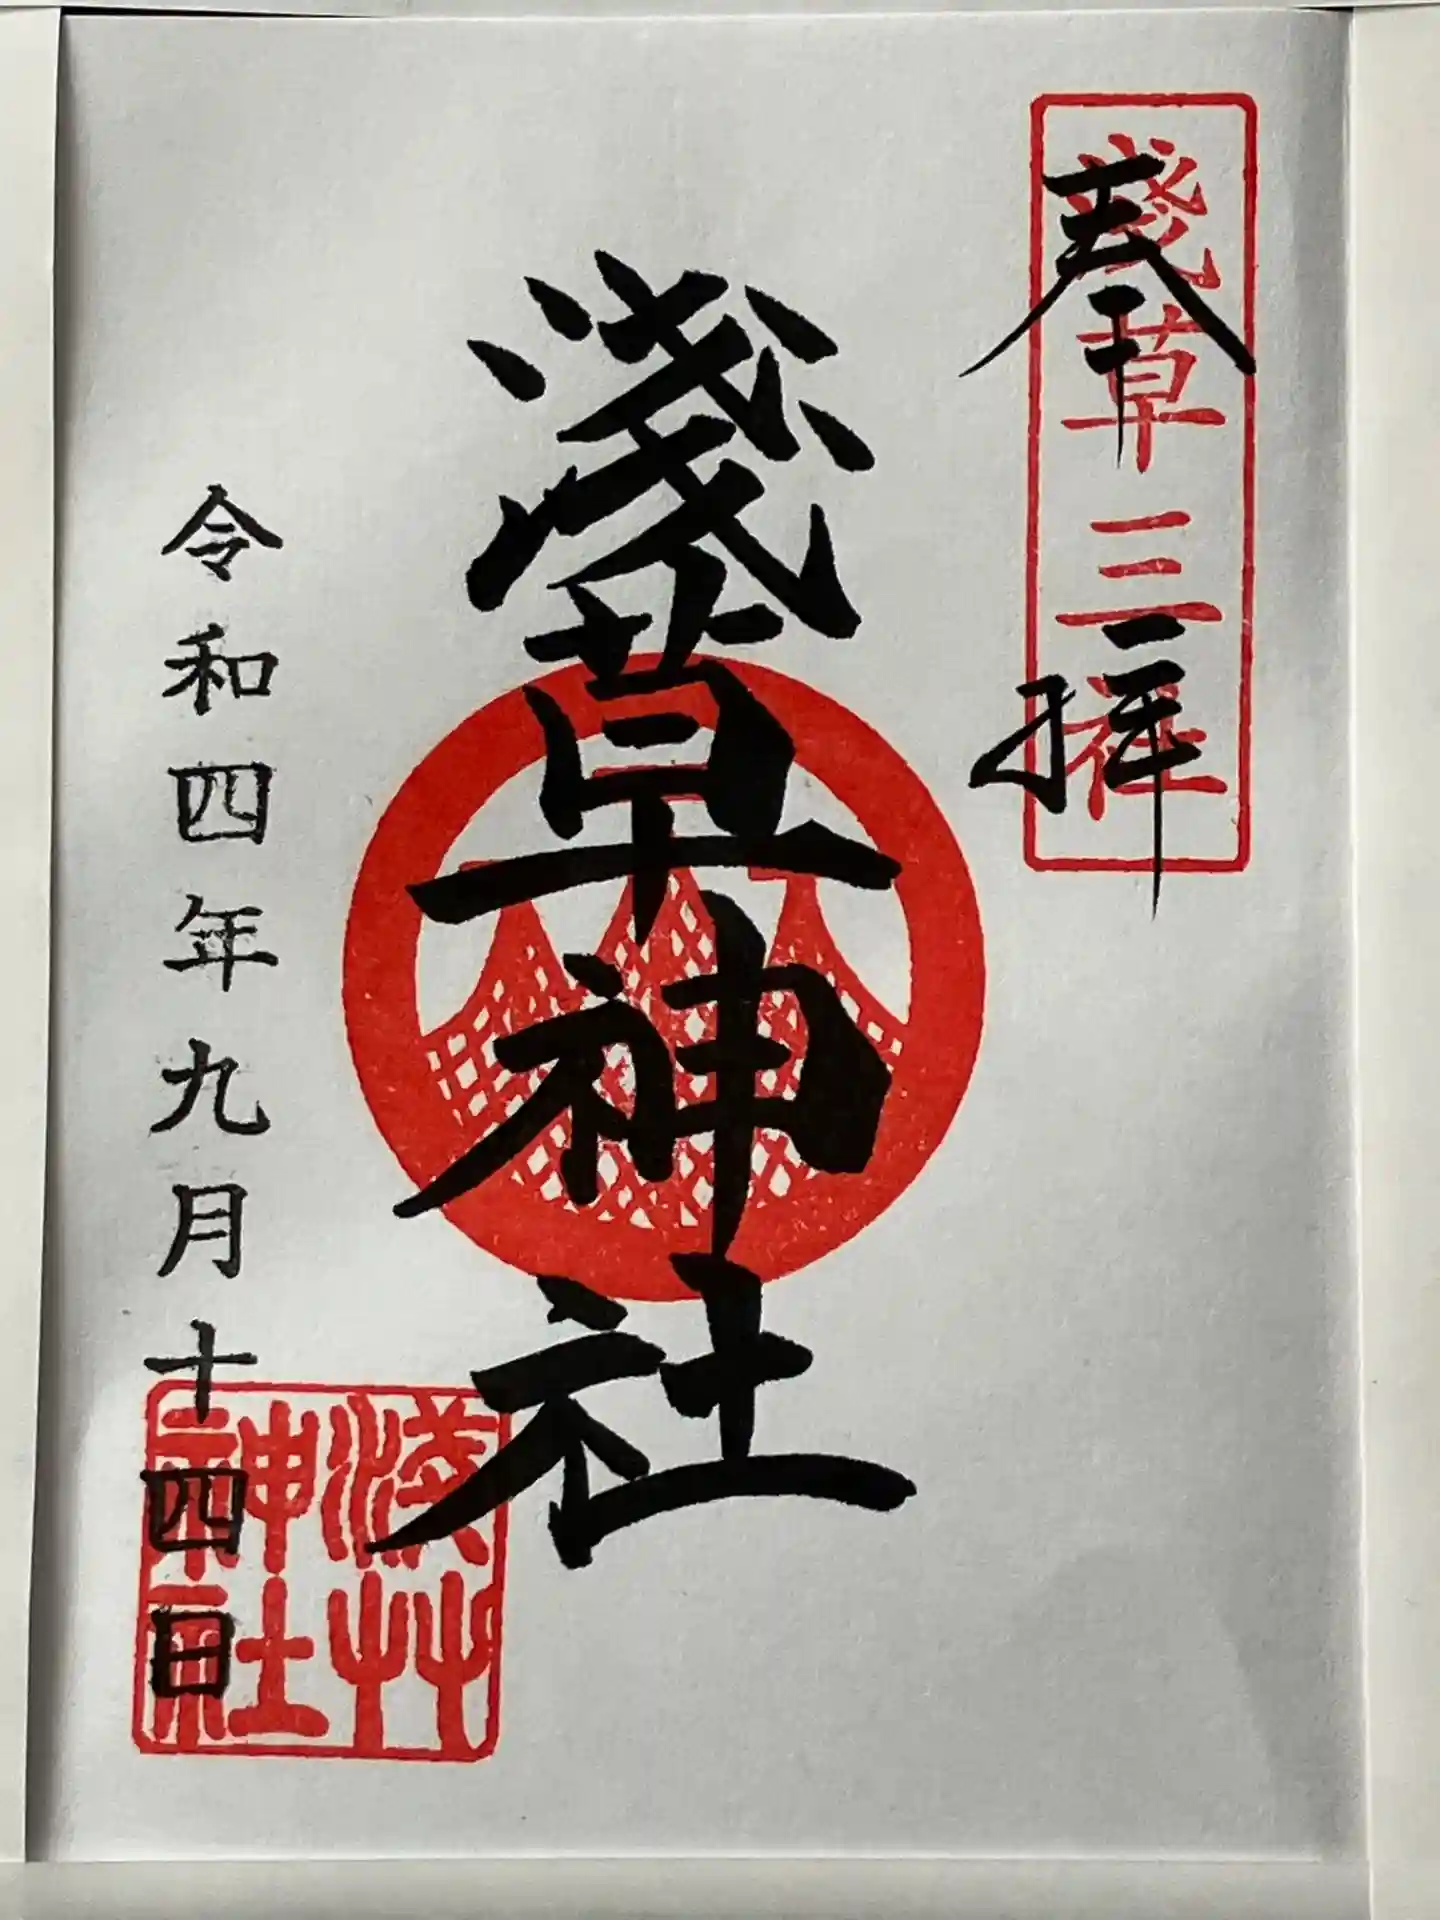 奉拝
淺草三社
淺草神社
令和四年九月十四日
淺艸
神社